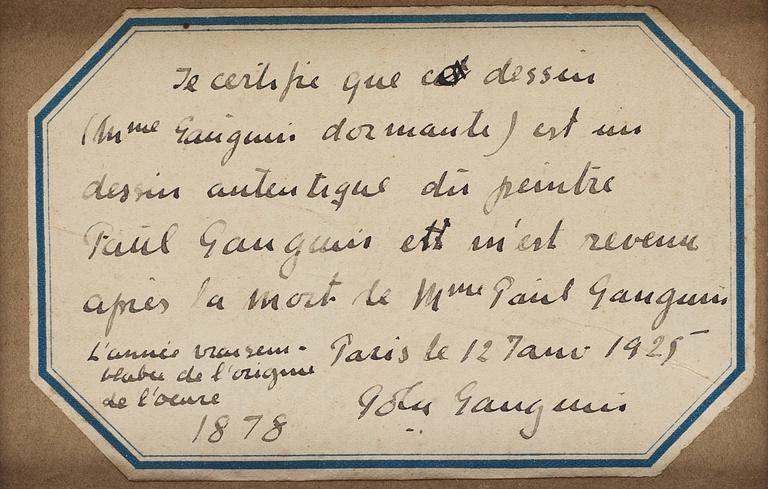 Je certifie que ce dessin
(Mme Gauguin dormante) est un
dessin autentique du peintre
Paul Gauguin et m'est revenu
après la mort de Mme Paul Gauguin
Paris le 12 Janv 1925
Pola Gauguin
L'année vraisem-
blable de l'origine
de l'oeuvre
1878